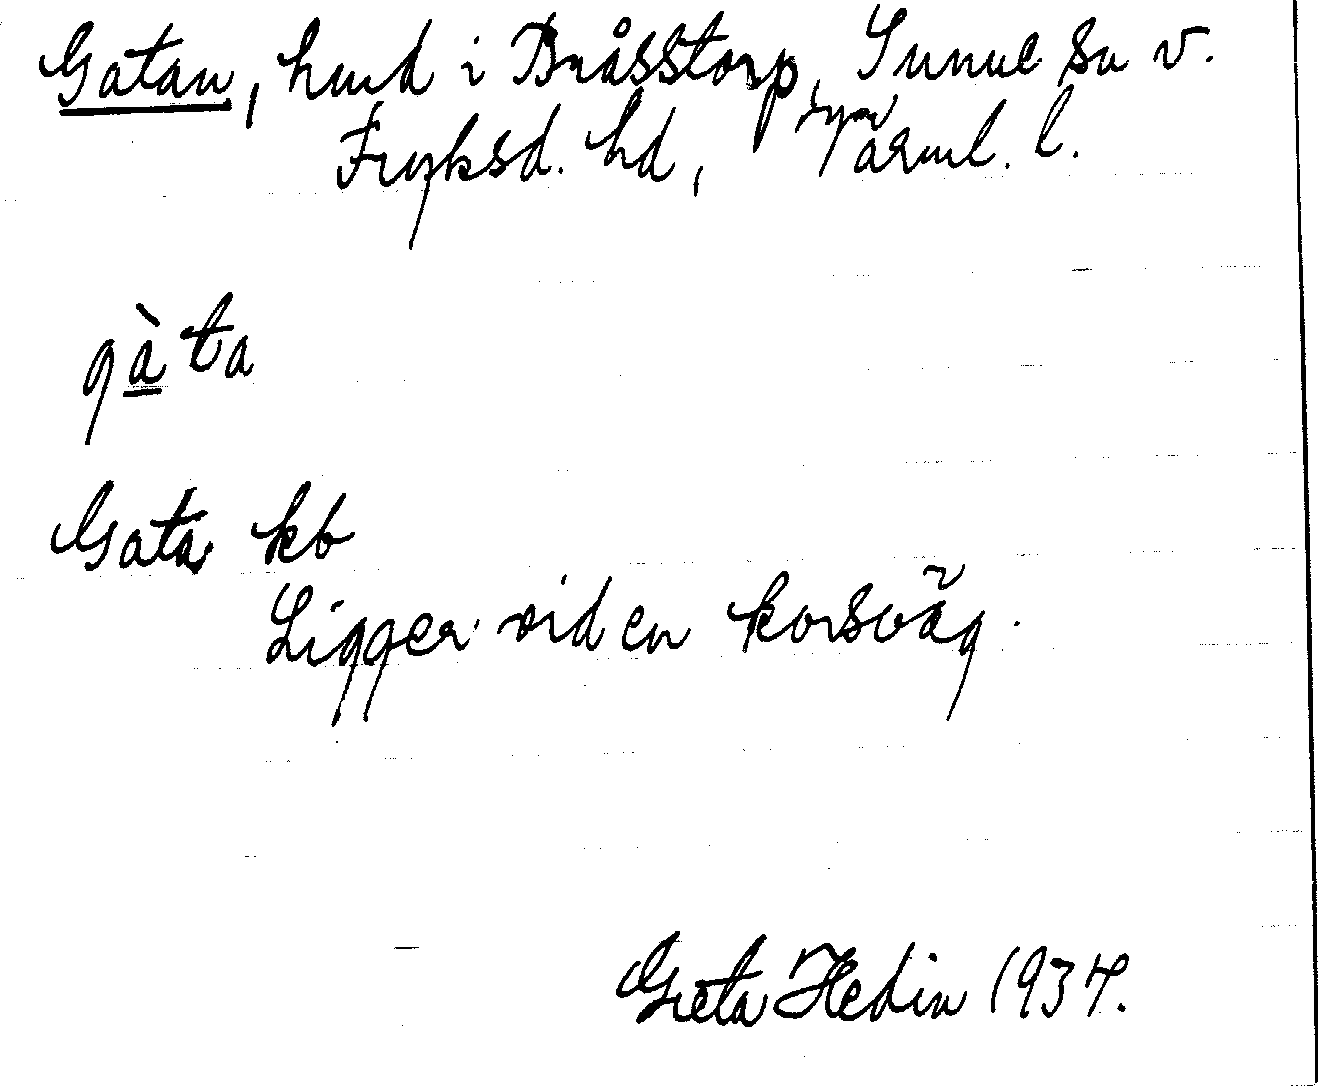 Gatan, hmd i Bråsstorp, Sunne sn v.
Fryksd. hd, Värml. l.
gàta
Gata kb
Ligger vid en korsväg.
Greta Hedin 1937.